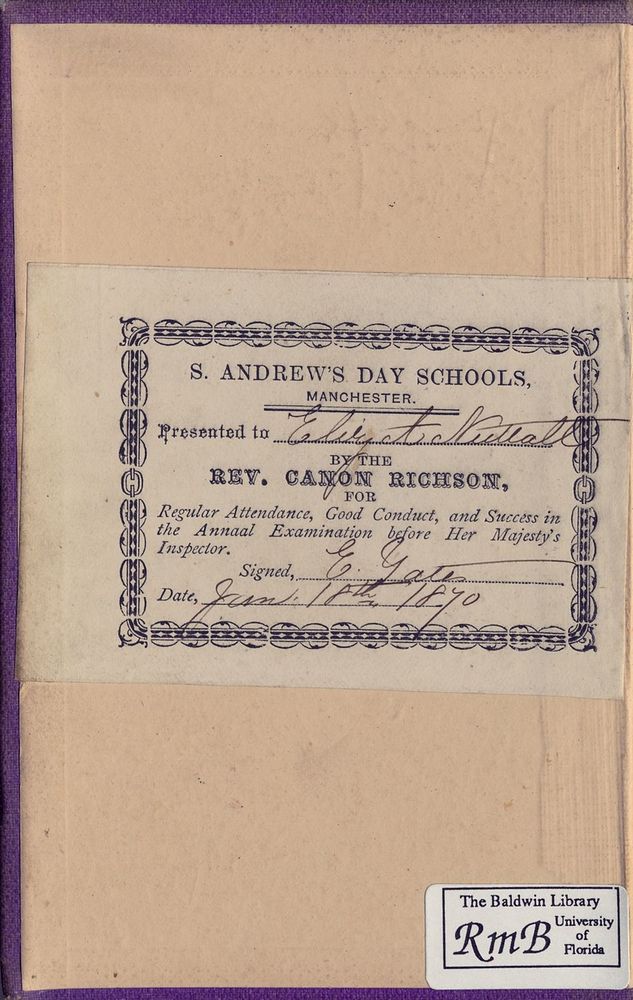 S. ANDREW'S DAY SCHOOLS,
MANCHESTER.
Presented to Nuttall
BY THE
REV. CANON RICHSON,
FOR
Regular Attendance, Good Conduct, and Success in
the Annaal Examination before Her Majesty's
Inspector.
Signed, E. Yates
Date, Jan. 18th, 1870
The Baldwin Library
RmB University
of
Florida